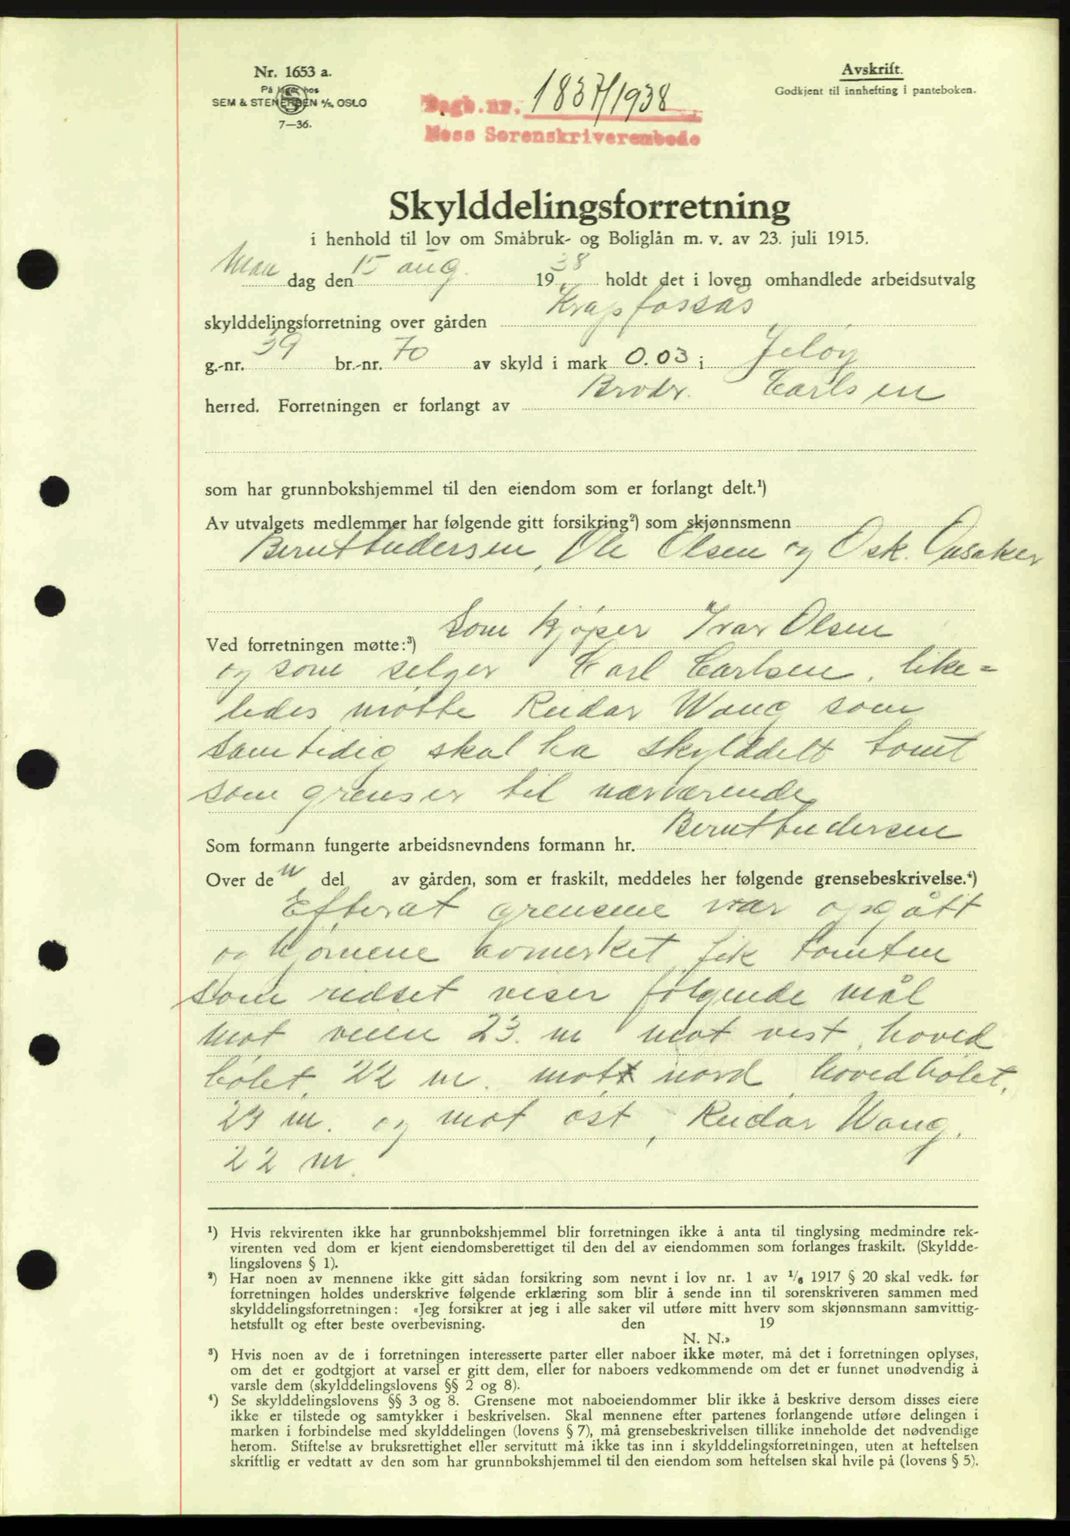 Nr. 1653 a.
På lager hos
SEM & STENERSEN A/S, OSLO
7—36.
Dagb.nr. 1837/1938
Moss Sorenskriverembede
Avskrift.
Godkjent til innhefting i panteboken.
Skylddelingsforretning
i henhold til lov om Småbruk- og Boliglån m. v. av 23. juli 1915.
Man dag den 15 aug. 1938 holdt det i loven omhandlede arbeidsutvalg
skylddelingsforretning over gården Krapfossås
g.-nr. 39 br.-nr. 70 av skyld i mark 0.03 i Jeløy
herred. Forretningen er forlangt av Brødr. Carlsen
som har grunnbokshjemmel til den eiendom som er forlangt delt.¹)
Av utvalgets medlemmer har følgende gitt forsikring²) som skjønnsmenn
Bernt Andersen, Ole Olsen og Osk. Aasaker
Ved forretningen møtte:³) Som kjøper Ivar Olsen
og som selger Carl Carlsen, like=
ledes møtte Reidar Wang som
samtidig skal ha skylddelt tomt
som grenser til nærværende
Som formann fungerte arbeidsnevndens formann hr. Bernt Andersen
Over den del av gården, som er fraskilt, meddeles her følgende grensebeskrivelse.⁴)
Efterat grensene var opgått
og hjørnene avmerket fik tomten
som ridset viser følgende mål
mot veien 23. m mot vest, hoved
bølet, 22 m. mott nord hovedbølet,
23 m. og mot øst, Reidar Wang.
22 m.
¹) Hvis rekvirenten ikke har grunnbokshjemmel blir forretningen ikke å anta til tinglysing medmindre rek-
virenten ved dom er kjent eiendomsberettiget til den del av eiendommen som forlanges fraskilt. (Skyldde-
lingslovens § 1).
²) Har noen av mennene ikke gitt sådan forsikring som nevnt i lov nr. 1 av 1/6 1917 § 20 skal vedk. før
forretningen holdes underskrive følgende erklæring som blir å sende inn til sorenskriveren sammen med
skylddelingsforretningen: «Jeg forsikrer at jeg i alle saker vil utføre mitt hverv som skjønnsmann samvittig-
hetsfullt og efter beste overbevisning. den 19
N. N.»
³) Hvis noen av de i forretningen interesserte parter eller naboer ikke møter, må det i forretningen oplyses,
om det er godtgjort at varsel er gitt dem, eller for naboers vedkommende om det er funnet unødvendig å
varsle dem (skylddelingslovens §§ 2 og 8).
⁴) Se skylddelingslovens §§ 3 og 8. Grensene mot naboeiendommer blir ikke å beskrive dersom disses eiere
ikke er tilstede og samtykker i beskrivelsen. Skal mennene efter partenes forlangende utføre delingen i
marken i forbindelse med skylddelingen (lovens § 7), må grensebeskrivelsen tillike inneholde det nødvendige
herom. Stiftelse av bruksrettighet eller servitutt må ikke tas inn i skylddelingsforretningen, uten at heftelsen
skriftlig er vedtatt av den som har grunnbokshjemmel til den eiendom som heftelsen skal hvile på (lovens § 5).